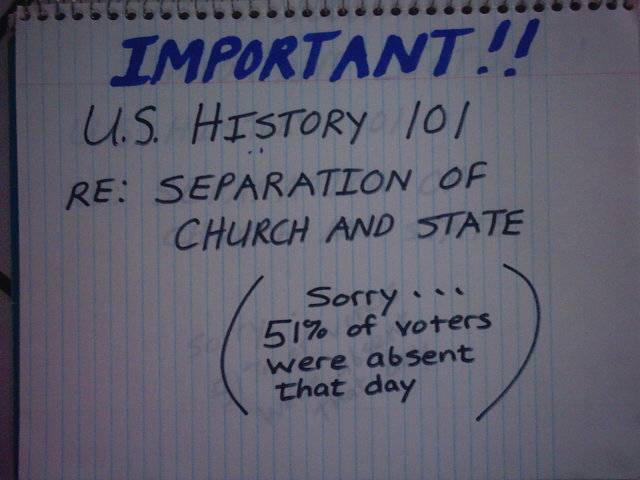 IMPORTANT!!
U.S. HISTORY 101
RE: SEPARATION OF
CHURCH AND STATE
(Sorry...
51% of voters
were absent
that day)